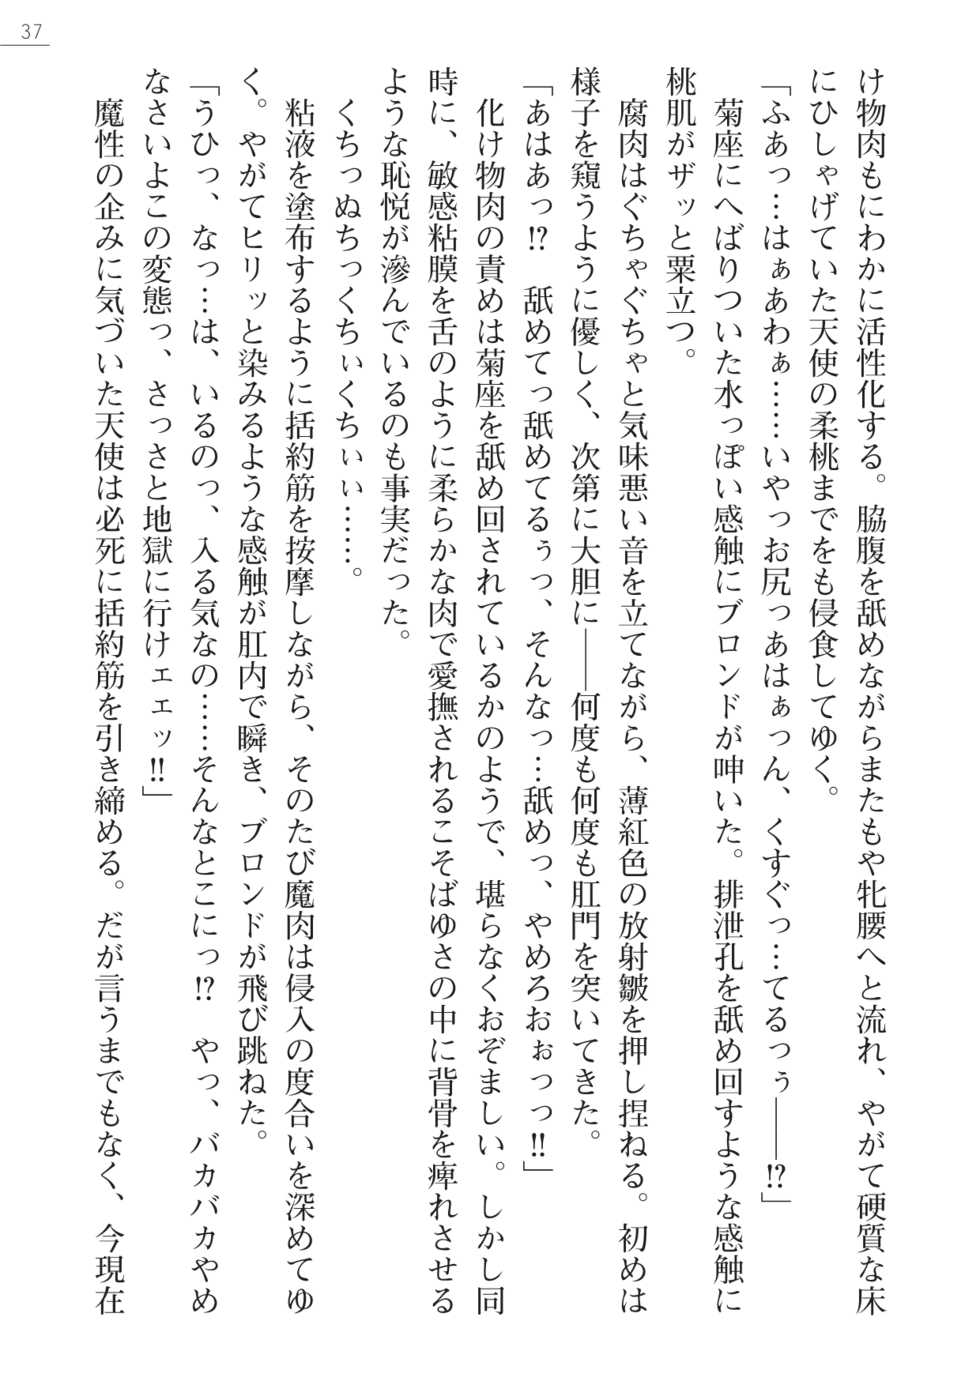 37
け物肉もにわかに活性化する。脇腹を舐めながらまたもや牝腰へと流れ、やがて硬質な床
にひしゃげていた天使の柔桃までをも侵食してゆく。
「ふあっ…はぁあわぁ……いやっお尻っあはぁっん、くすぐっ…てるっぅ――!?」
菊座にへばりついた水っぽい感触にブロンドが呻いた。排泄孔を舐め回すような感触に
桃肌がザッと粟立つ。
腐肉はぐちゃぐちゃと気味悪い音を立てながら、薄紅色の放射皺を押し捏ねる。初めは
様子を窺うように優しく、次第に大胆に――何度も何度も肛門を突いてきた。
「あはあっ!?　舐めてっ舐めてるぅっ、そんなっ…舐めっ、やめろおぉっっ!!」
化け物肉の責めは菊座を舐め回されているかのようで、堪らなくおぞましい。しかし同
時に、敏感粘膜を舌のように柔らかな肉で愛撫されるこそばゆさの中に背骨を痺れさせる
ような恥悦が滲んでいるのも事実だった。
くちっぬちっくちぃくちぃぃ……。
粘液を塗布するように括約筋を按摩しながら、そのたび魔肉は侵入の度合いを深めてゆ
く。やがてヒリッと染みるような感触が肛内で瞬き、ブロンドが飛び跳ねた。
「うひっ、なっ…は、いるのっ、入る気なの……そんなとこにっ!?　やっ、バカバカやめ
なさいよこの変態っ、さっさと地獄に行けェェッ!!」
魔性の企みに気づいた天使は必死に括約筋を引き締める。だが言うまでもなく、今現在